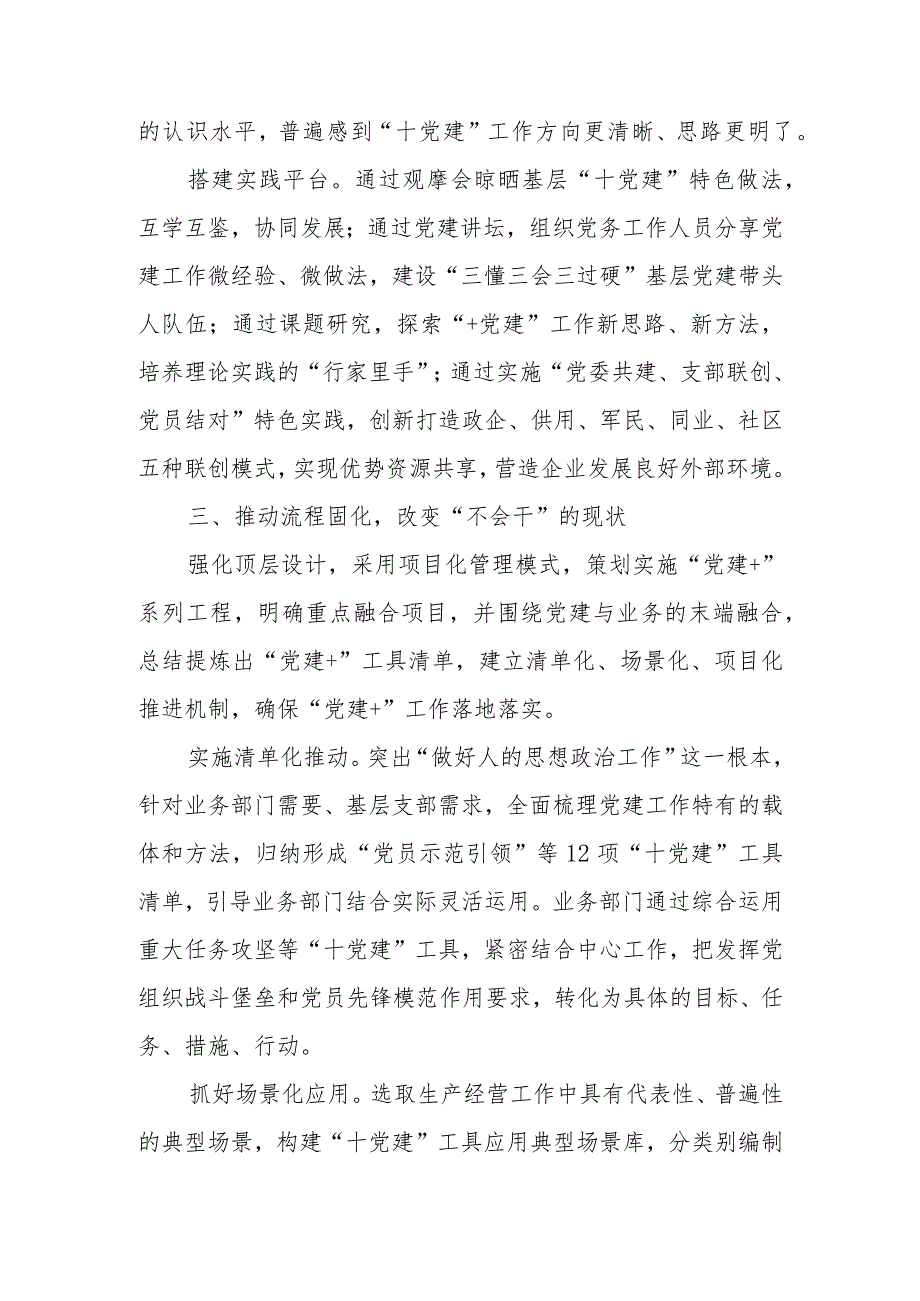 的认识水平，普遍感到“十党建”工作方向更清晰、思路更明了。
搭建实践平台。通过观摩会晾晒基层“十党建”特色做法，
互学互鉴，协同发展；通过党建讲坛，组织党务工作人员分享党
建工作微经验、微做法，建设“三懂三会三过硬”基层党建带头
人队伍；通过课题研究，探索“+党建”工作新思路、新方法，
培养理论实践的“行家里手”；通过实施“党委共建、支部联创、
党员结对”特色实践，创新打造政企、供用、军民、同业、社区
五种联创模式，实现优势资源共享，营造企业发展良好外部环境。
三、推动流程固化，改变“不会干”的现状
强化顶层设计，采用项目化管理模式，策划实施“党建+”
系列工程，明确重点融合项目，并围绕党建与业务的末端融合，
总结提炼出“党建+”工具清单，建立清单化、场景化、项目化
推进机制，确保“党建+”工作落地落实。
实施清单化推动。突出“做好人的思想政治工作”这一根本，
针对业务部门需要、基层支部需求，全面梳理党建工作特有的载
体和方法，归纳形成“党员示范引领”等12项“十党建”工具
清单，引导业务部门结合实际灵活运用。业务部门通过综合运用
重大任务攻坚等“十党建”工具，紧密结合中心工作，把发挥党
组织战斗堡垒和党员先锋模范作用要求，转化为具体的目标、任
务、措施、行动。
抓好场景化应用。选取生产经营工作中具有代表性、普遍性
的典型场景，构建“十党建”工具应用典型场景库，分类别编制